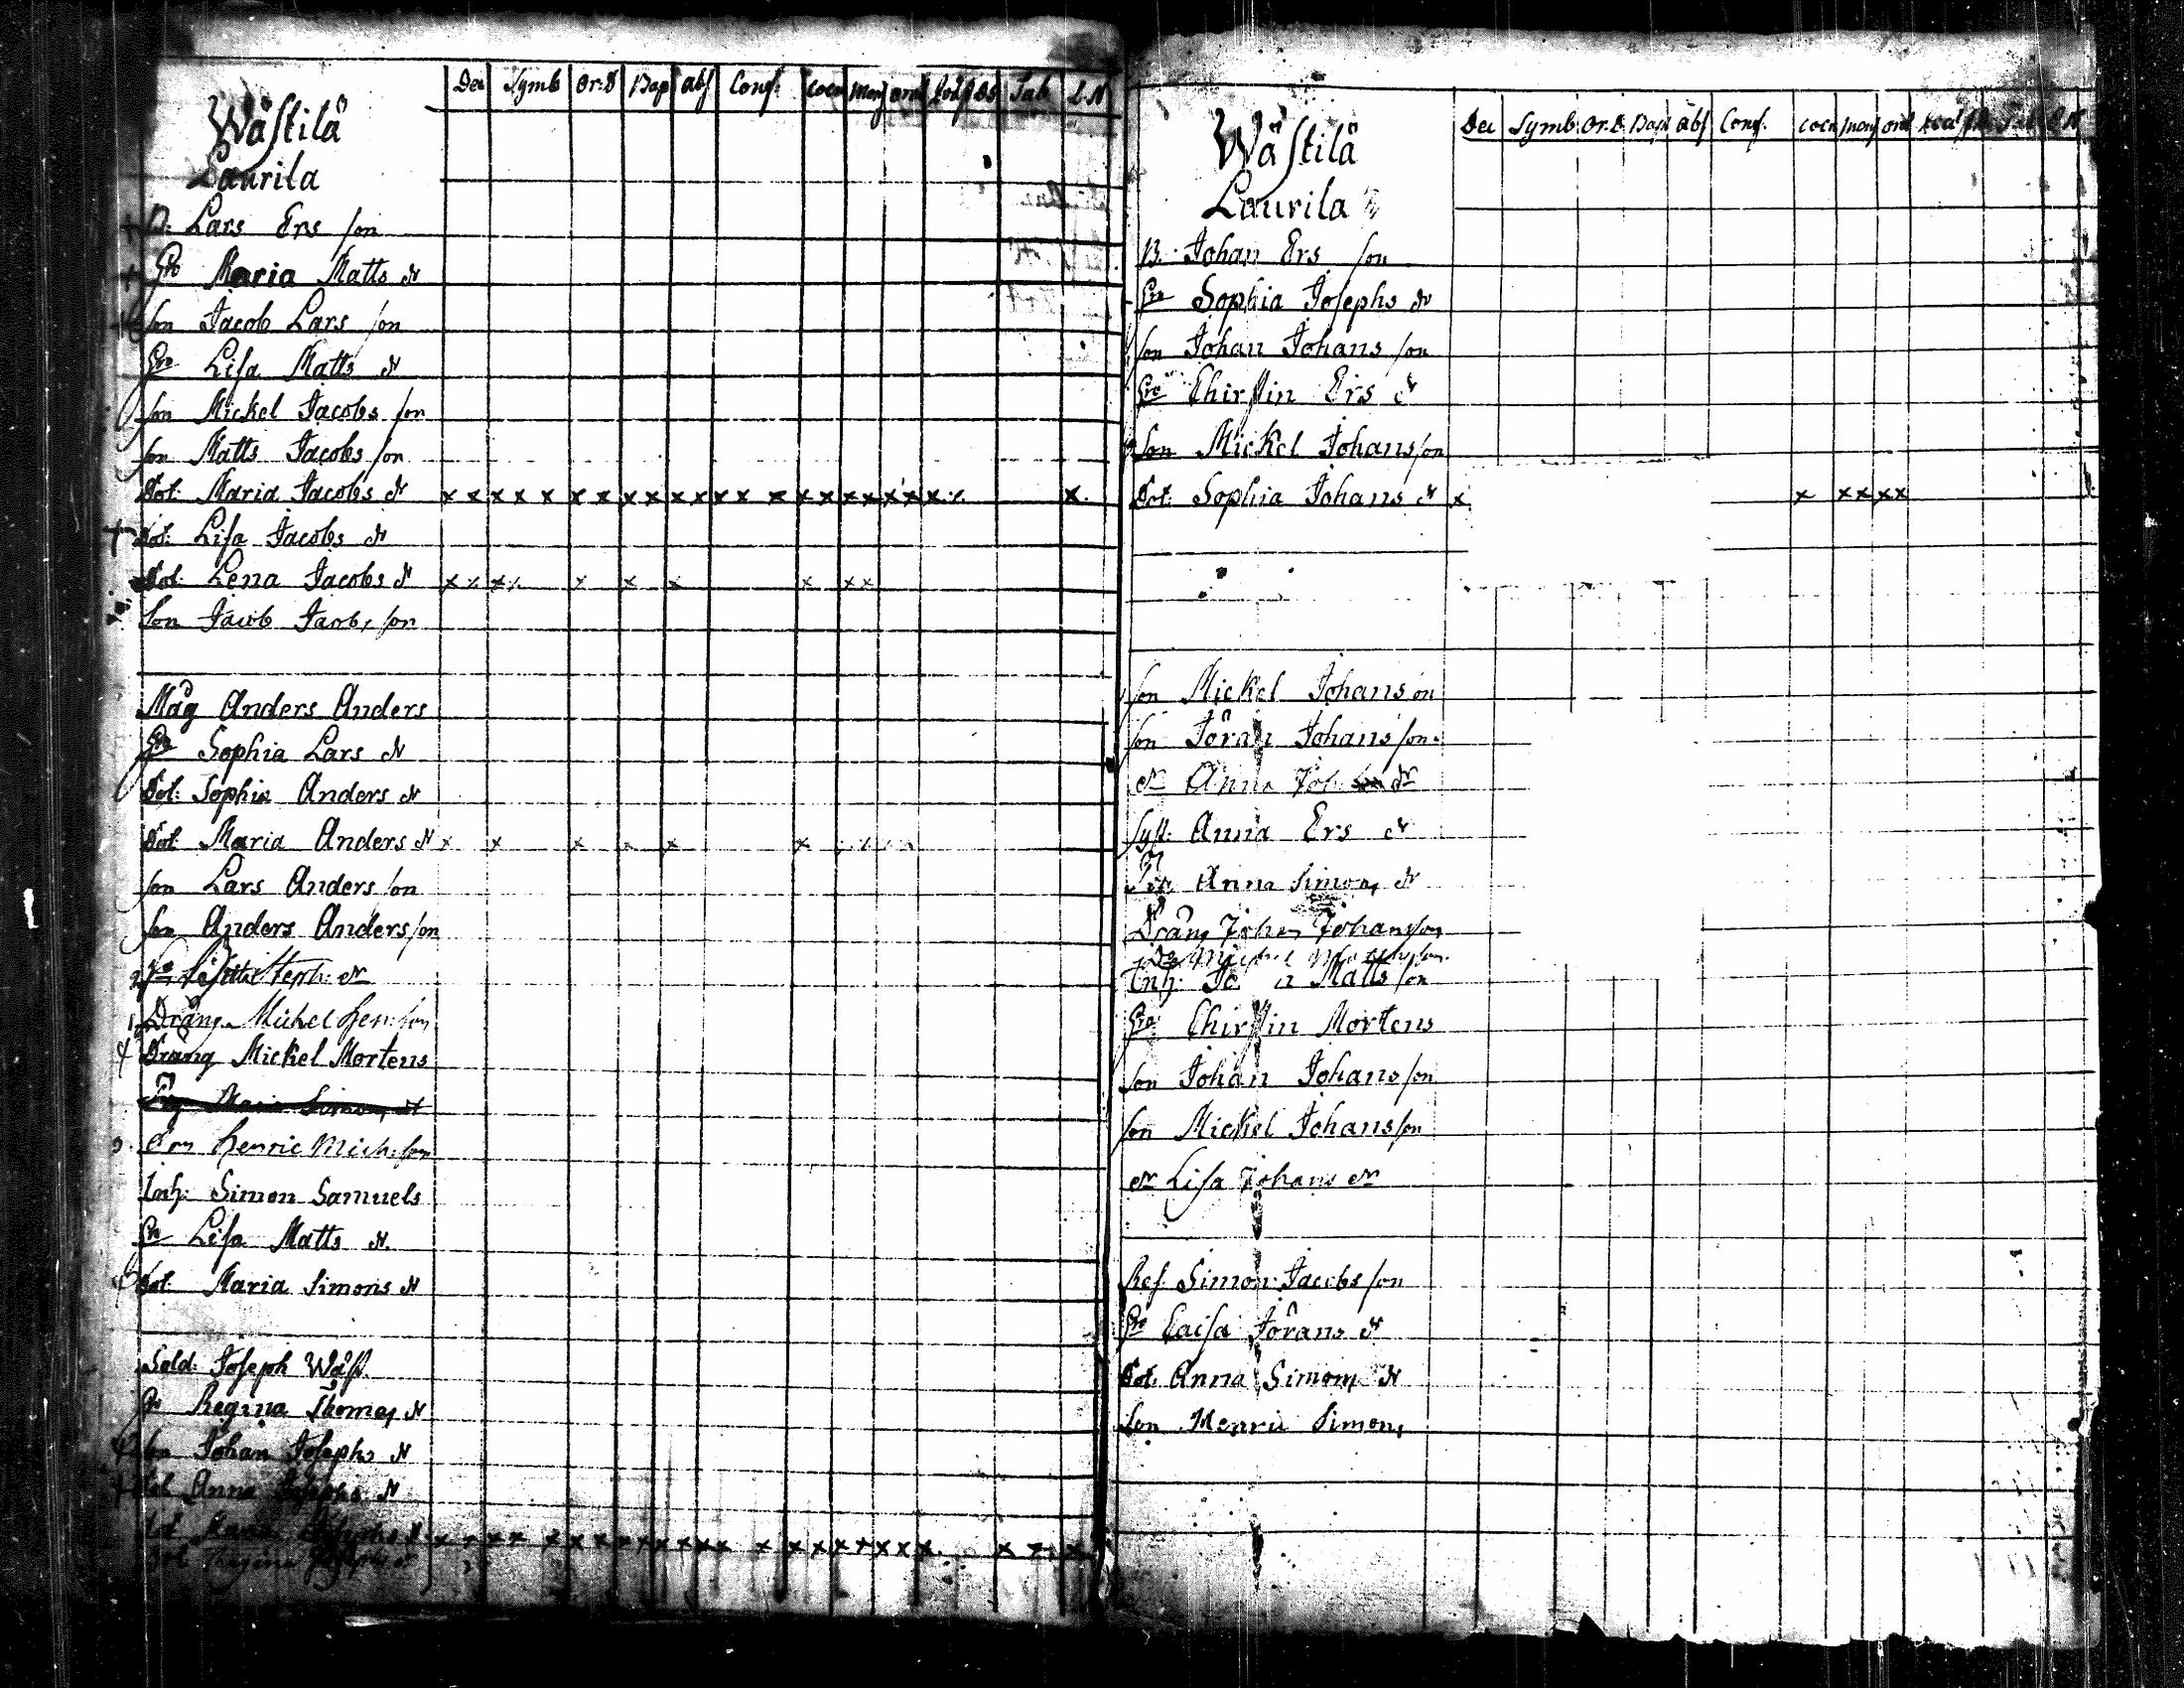 Dec Symb Or:D Bap Abs Conf: Coen Mon Orat Sab L.N
Wästilä
Laurila
B: Lars Ers son
Hro Maria Matts dr
son Jacob Lars son
Hro Lisa Matts dr
son Mickel Jacobs son
son Matts Jacobs son
Dot: Maria Jacobs dr x x x x x x x x x x x x x x x x x x x x x x x.
Dot: Lisa Jacobs dr
Dot: Lena Jacobs dr x x x x x x x x x x
Son Jacob Jacobs son
Måg Anders Anders
Hro Sophia Lars dr
Dot: Sophia Anders dr
Dot Maria Anders dr x x x x x x
son Lars Anders son
son Anders Anders son
Steph: dr
Dräng Michel Hen: son
Dräng Mickel Mortens
Maria Simons dr
Henric Mich: son
Inh: Simon Samuels
Hro Lisa Matts dr.
Dot: Maria Simons dr
Sold: Joseph Wäst.
Hro Regina Thomas dr
son Johan Josephs dr
Dot Anna Josephs dr
Dot Maria Josephs dr x x x x x x x x x x x x x x x x x x x x x x x x
Dot Regina Josephs dr
Dec Symb: Or.D. Bapt Abs Conf. Coen Mon Orat
Wästilä
Laurila
B. Johan Ers son
Hro Sophia Josephs dr
son Johan Johans son
Hro Chirstin Ers dr
Son Mickel Johans son
Dot: Sophia Johans dr x x x x x x
son Mickel Johans son
son Jöran Johans son.
dr Anna Joh dr
Syst: Anna Ers dr
Anna Simons dr
Dräng Johan Johansson
Inh: Matts son
Hro Chirstin Mortens
son Johan Johans son
son Mickel Johans son
dr Lisa Johans dr
Ref Simon Jacobs son
Hro Caisa Jörans dr
Dot: Anna Simons dr
Son Henric Simons